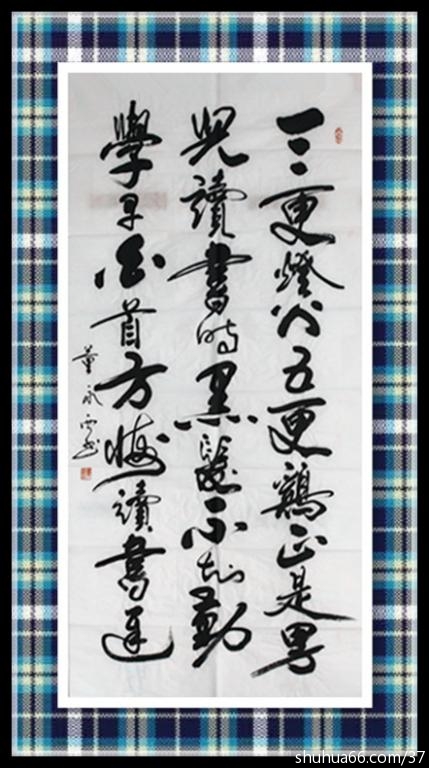 三更燈火五更鷄正是男
兒讀書時黑髮不知勤
學早白首方悔讀書遲
董永
shuhua66.com/37